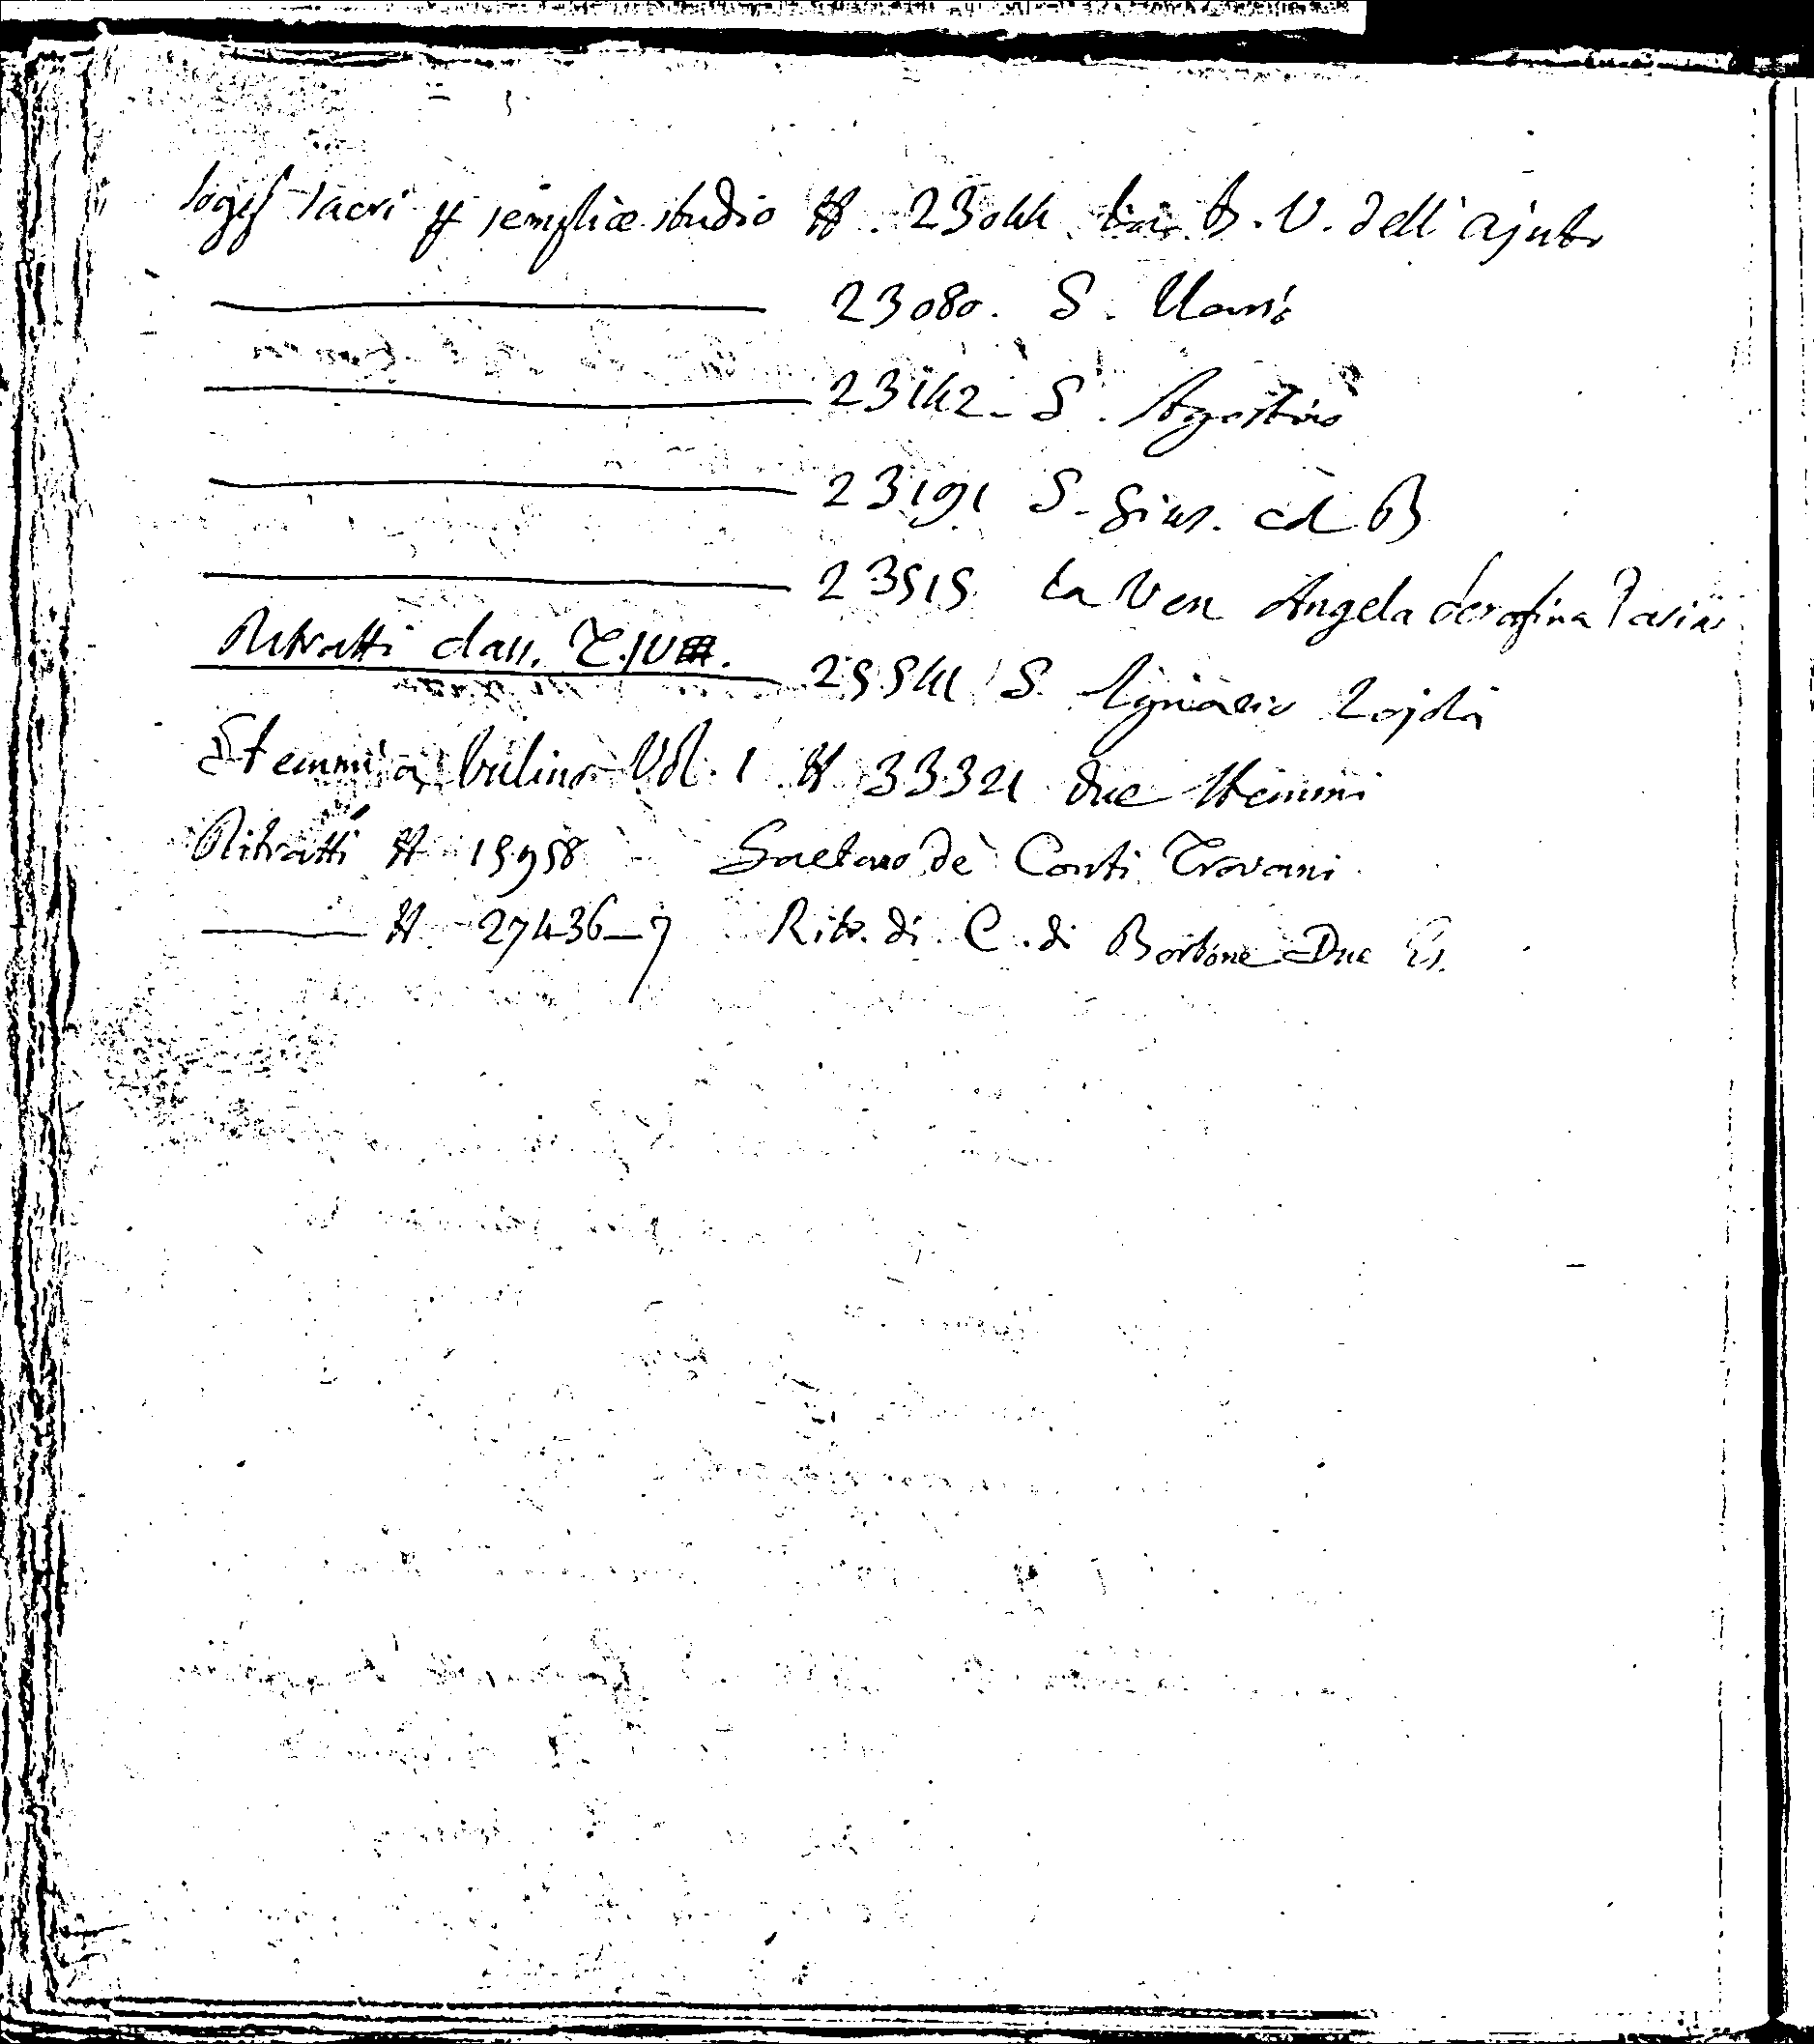 Sogg. sacri p semplice studio N. 23044 B. V. dell' ajuto
23080. S.
23142 - S. Agostino
23191 S. Gius. col B
23515 La Ven Angela Serafina
Ritratti class. T. IV. 25541 S. Ignazio Lojola
Stemmi a bulino Vol. 1 N 33321 due stemmi
Ritratti N 15958 Gaetano de Conti Trovani
N 27436-7 Ritr. di C. di Borbone Due Es.